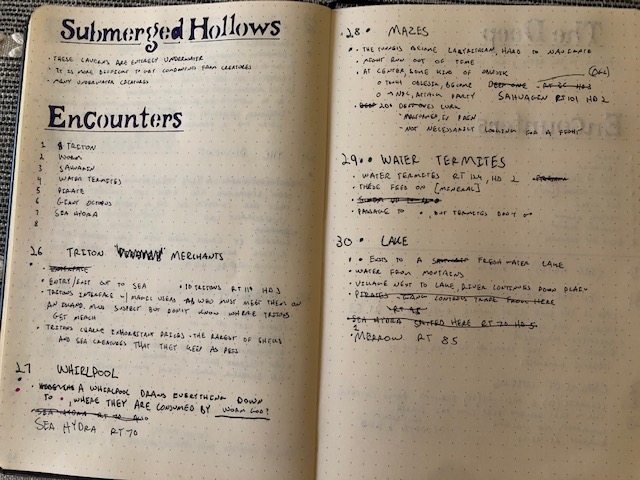 Submerged Hollows
• THESE CAVERNS ARE ENTIRELY UNDERWATER
• IT IS MORE DIFFICULT TO GET CONDITIONS FROM CREATURES
• MANY UNDERWATER CREATURES
Encounters
1 8 TRITON
2 WORM
3 SAHUAGIN
4 WATER TERMITES
5 PIRATE
6 GIANT OCTOPUS
7 SEA HYDRA
8
26 TRITON MERCHANTS
• ENTRY/EXIT OUT TO SEA • 10 TRITONS RT 119 HD 3
• TRITONS INTERFACE W/ MAGIC USERS WHO MUST MEET THEM ON
AN ISLAND. MUS SUSPECT BUT DON'T KNOW WHERE TRITONS
GET MERCH
• TRITONS CHARGE EXHORBITANT PRICES • THE RAREST OF SHELLS
AND SEA CREATURES THAT THEY KEEP AS PETS
27 WHIRLPOOL
• A WHIRLPOOL DRAWS EVERYTHING DOWN
TO •, WHERE THEY ARE CONSUMED BY WORM GOD?
SEA HYDRA RT 70 AND
SEA HYDRA RT 70
28 • MAZES
• THE TUNNELS BECOME LABYRINTHIAN, HARD TO NAVIGATE
• MIGHT RUN OUT OF TIME
• AT CENTER, SOME KIND OF OBELISK
○ TOUCH OBELISK, BECOME DEEP ONE
○ → NPC, ATTACK PARTY SAHUAGIN RT 101 HD 2
• 20 DEEP ONES LURK
• MALFORMED, IN PAIN
- NOT NECESSARILY LOOKING FOR A FIGHT
29 • • WATER TERMITES
• WATER TERMITES RT 124, HD 2
• THESE FEED ON [MINERAL]
• PASSAGE TO •, BUT TERMITES DON'T GO
30 • LAKE
• • EXITS TO A FRESH WATER LAKE
• WATER FROM MONTAINS
• VILLAGE NEXT TO LAKE, RIVER CONTINUES DOWN
• PIRATES - GANG CONTROLS TRADE FROM HERE
SEA HYDRA SPOTTED HERE RT 70 HD 5
2
• MERROW RT 85